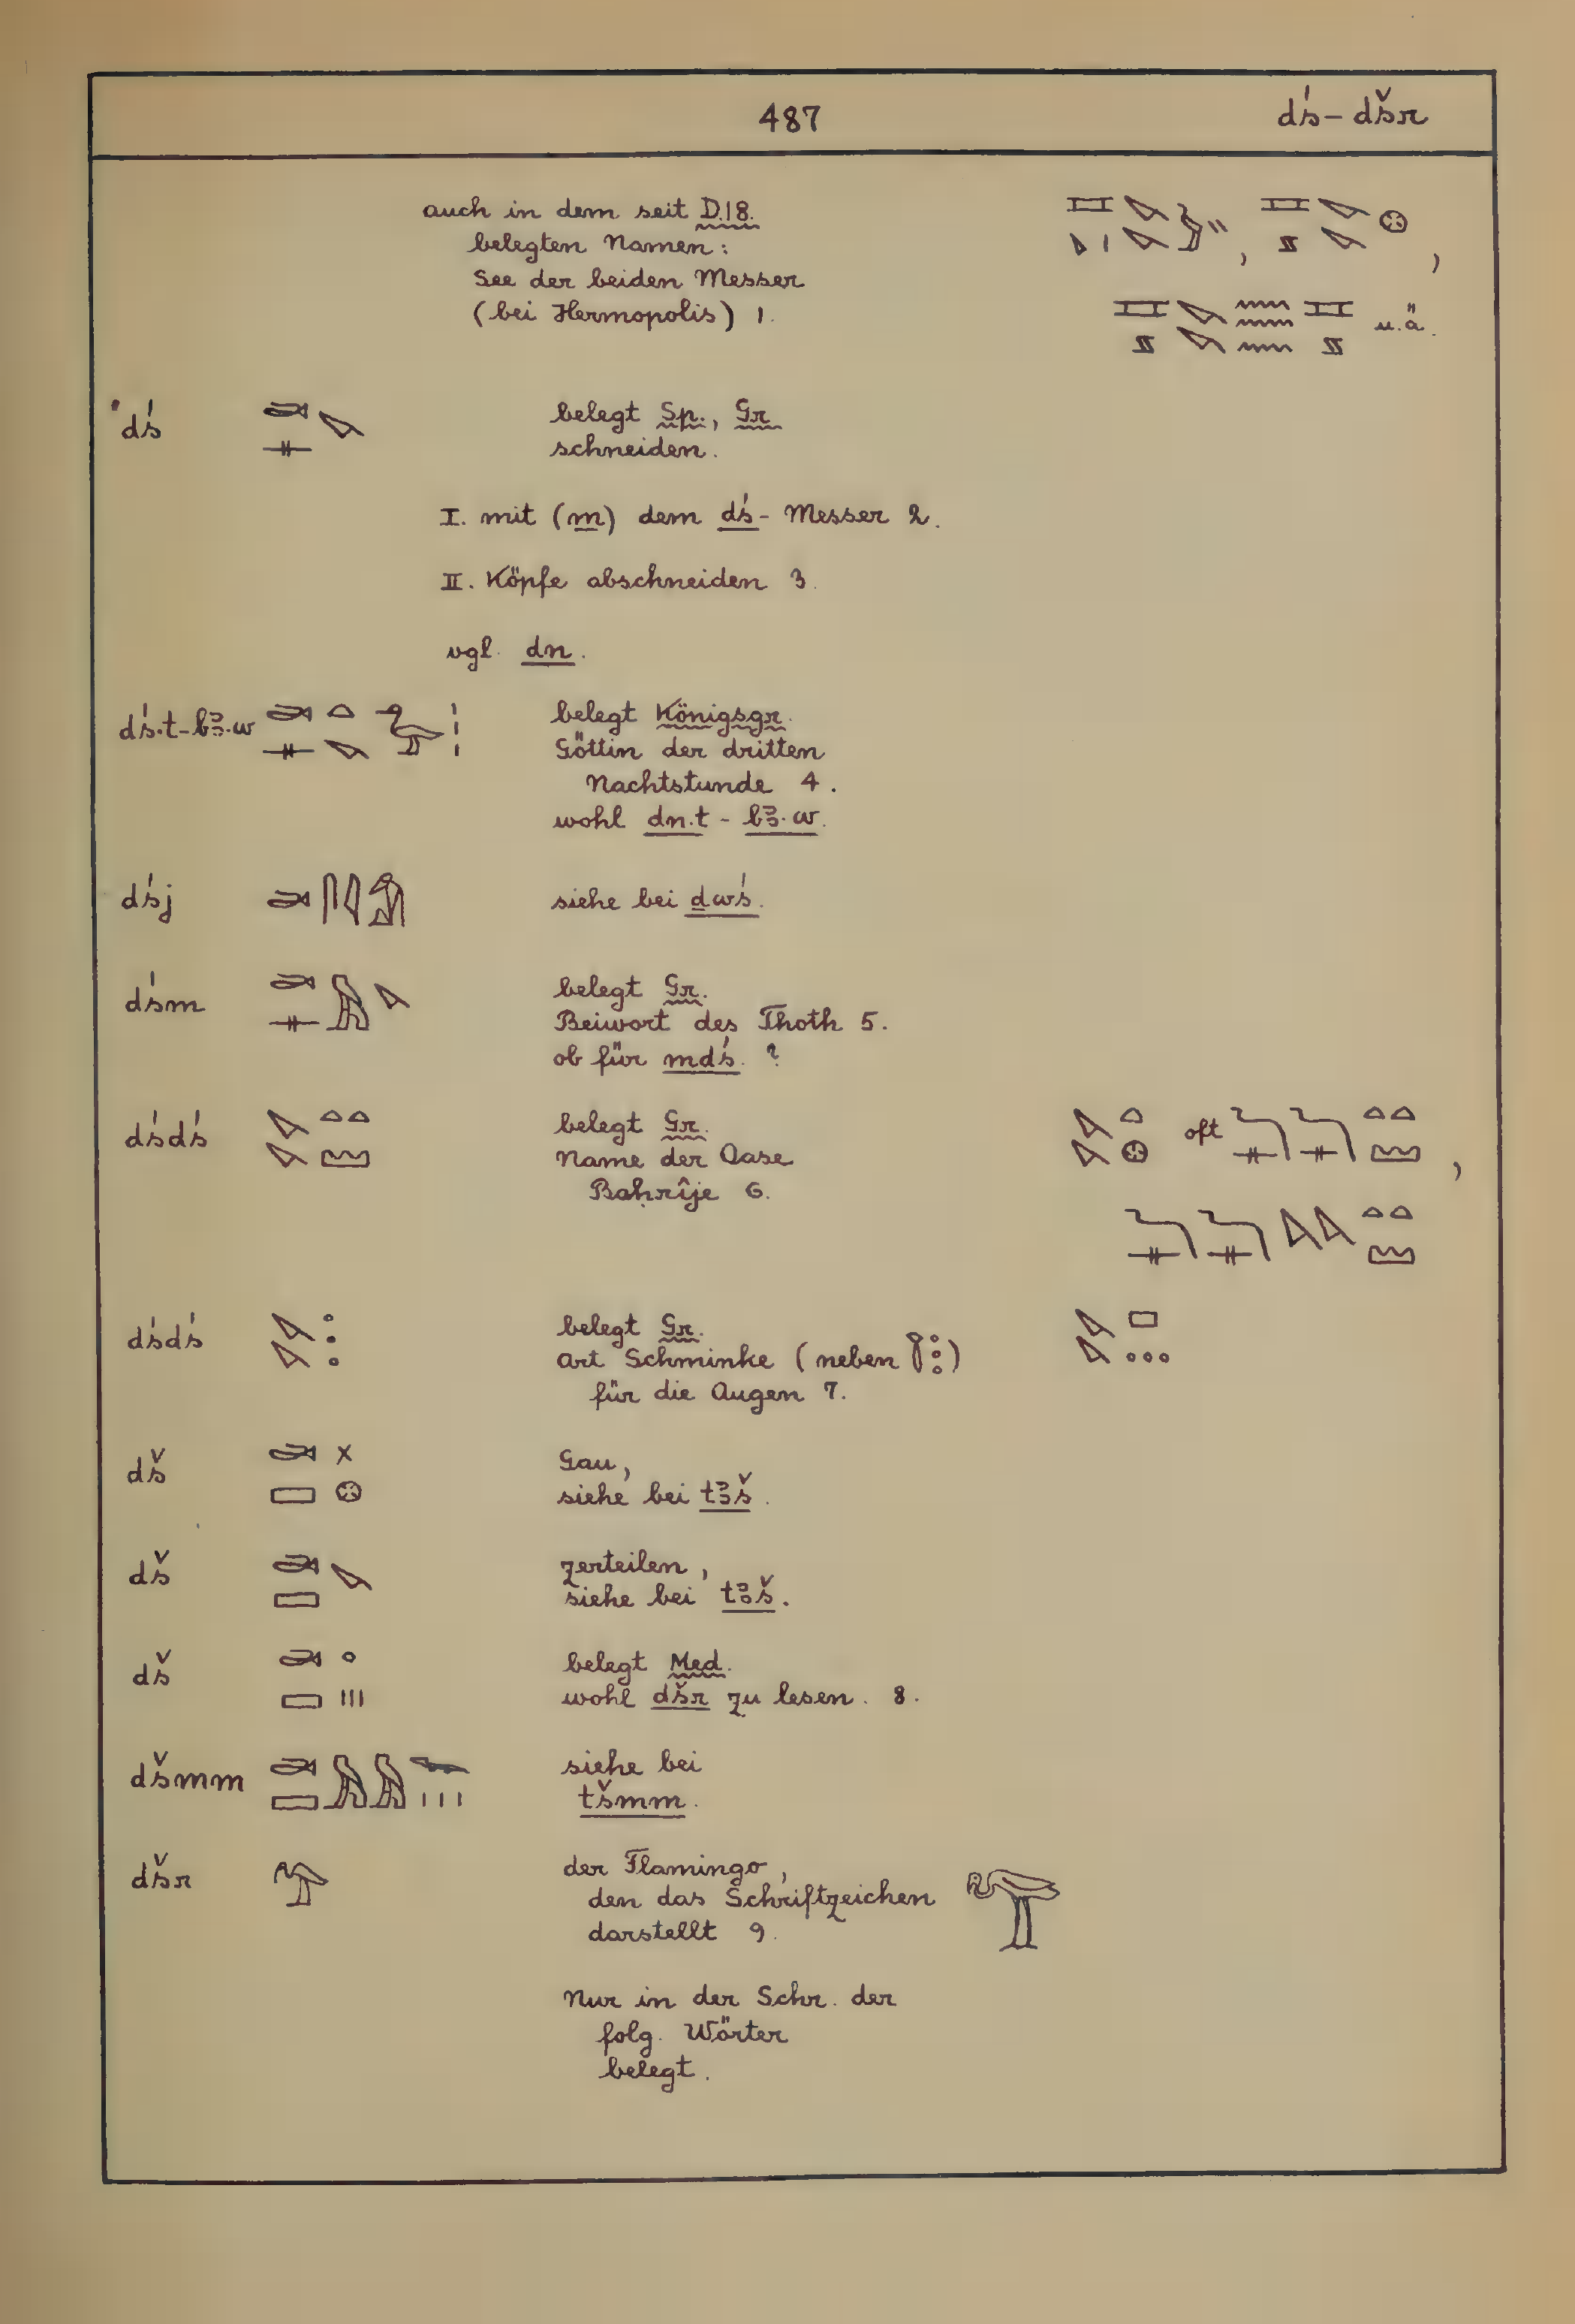 487 dś – dšr
auch in dem seit D.18.
belegten Namen:
See der beiden Messer
(bei Hermopolis) 1.
u.ä.
dś belegt Sp., Gr.
schneiden.
I. mit (m) dem dś-Messer 2.
II. Köpfe abschneiden 3.
vgl. dn.
dś.t-bꜣ.w belegt Königsgr.
Göttin der dritten
Nachtstunde 4.
wohl dn.t - bꜣ.w.
dśj siehe bei dwś.
dśm belegt Gr.
Beiwort des Thoth 5.
ob für mdś. ?
dśdś belegt Gr. oft
Name der Oase
Baḥrîje 6.
dśdś belegt Gr.
Art Schminke (neben )
für die Augen 7.
dš Gau,
siehe bei tꜣš.
dš zerteilen,
siehe bei tꜣš.
dš belegt Med.
wohl dšr zu lesen. 8.
dšmm siehe bei
tšmm.
dšr der Flamingo,
den das Schriftzeichen
darstellt 9.
Nur in der Schr. der
folg. Wörter
belegt.